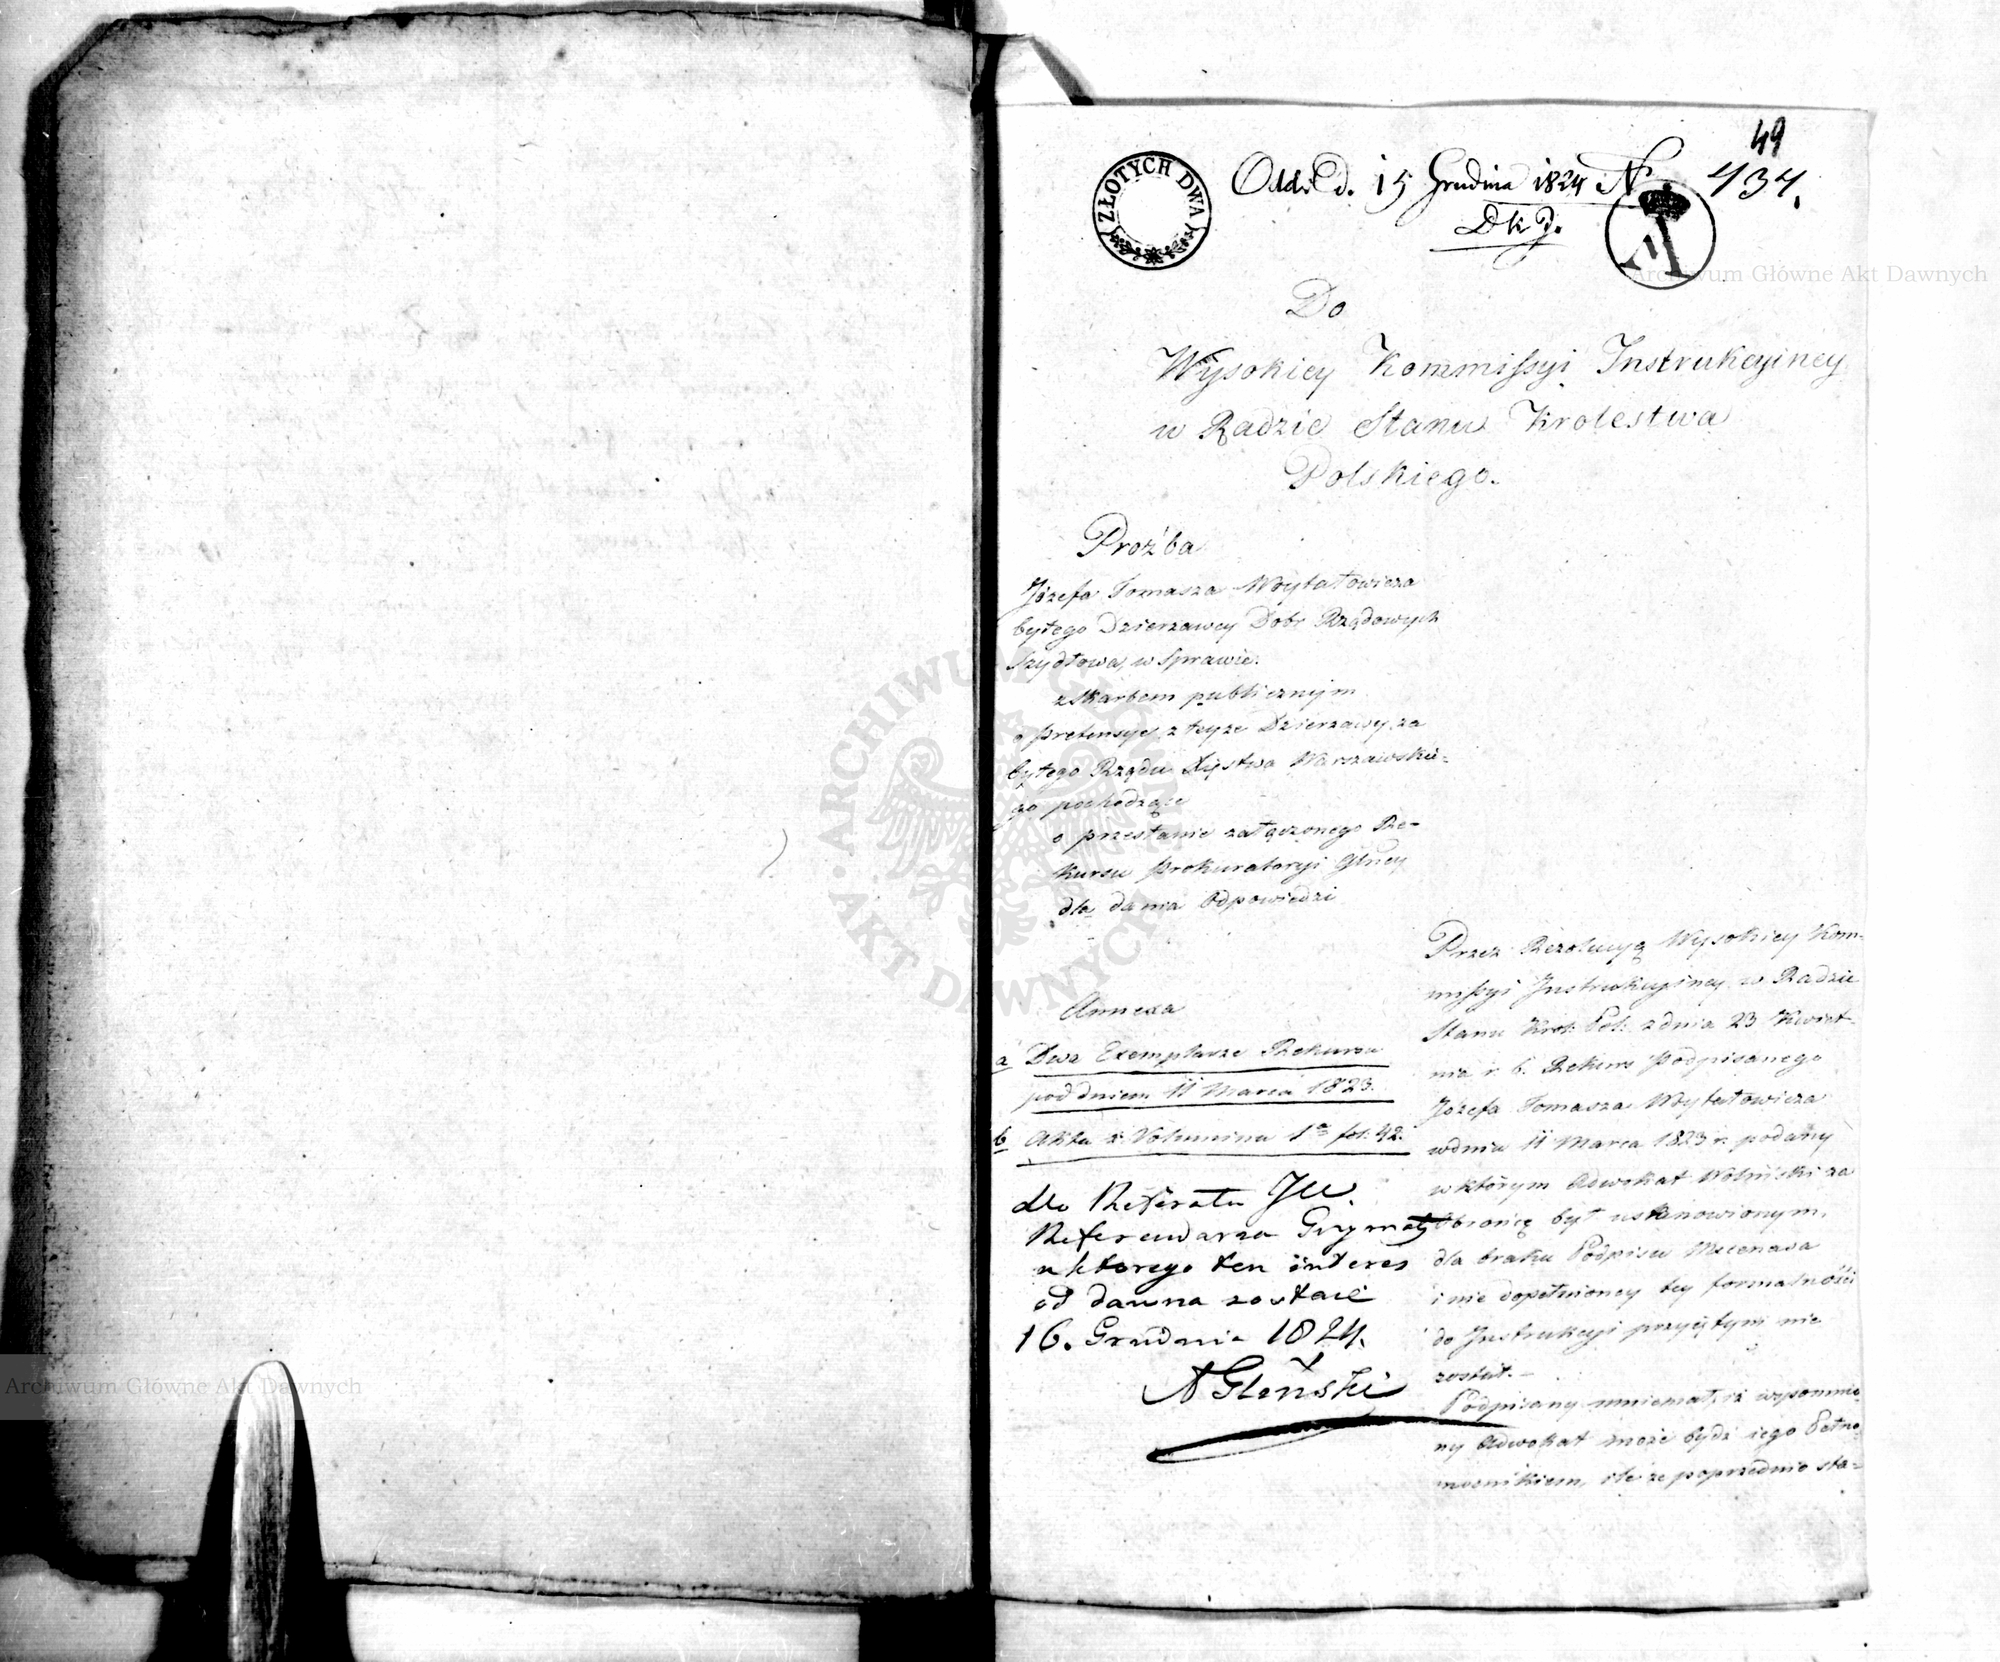 49
Odd: d. 15 Grudnia 1824 Nr 434.
DKJ.
ZŁOTYCH DWA
Do
Wysokiey Kommissyi Instrukcyiney
w Radzie Stanu Krolestwa
Polskiego.
Proźba
Józefa Tomasza Woytatowicza
byłego Dzierzawcy Dobr Rządowych
Szydłowa, w sprawie.
z Skarbem publicznym
o pretensye z teyze Dzierzawy, za
byłego Rządu Xięstwa Warszawskie-
go pochodzące
o przesłanie załączonego Re-
kursu Prokuratoryi Głney
dla dania Odpowiedzi
Annexa
a Dwa Exemplarze Rekursu
pod dniem 11 Marca 1823.
b Akta z Volumina 1a fol: 42.
do Referatu JW.
Referendarza
u ktorego ten interes
od dawna zostaie
16. Grudnia 1824.
A Gliński
Przez Rezolucyą Wysokiey Kom-
missyi Instrukcyiney w Radzie
Stanu Krol: Pol: z dnia 23 Kwiet-
nia r. b. Rekurs Podpisanego
Józefa Tomasza Woytatowicza
w dniu 11 Marca 1823 r. podany
w którym Adwokat Wolinski za
Obrońcę był ustanowionym,
dla braku Podpisu Mecenasa
i nie dopełnioney tey formalności
do Instrukcyi przyiętym nie
został. –
Podpisany mniemał, iż wspomnio-
ny Adwokat może bydź iego Pełno-
mocnikiem, ile że poprzednio sta-
Archiwum Główne Akt Dawnych
Archiwum Główne Akt Dawnych
ARCHIWUM GŁÓWNE AKT DAWNYCH